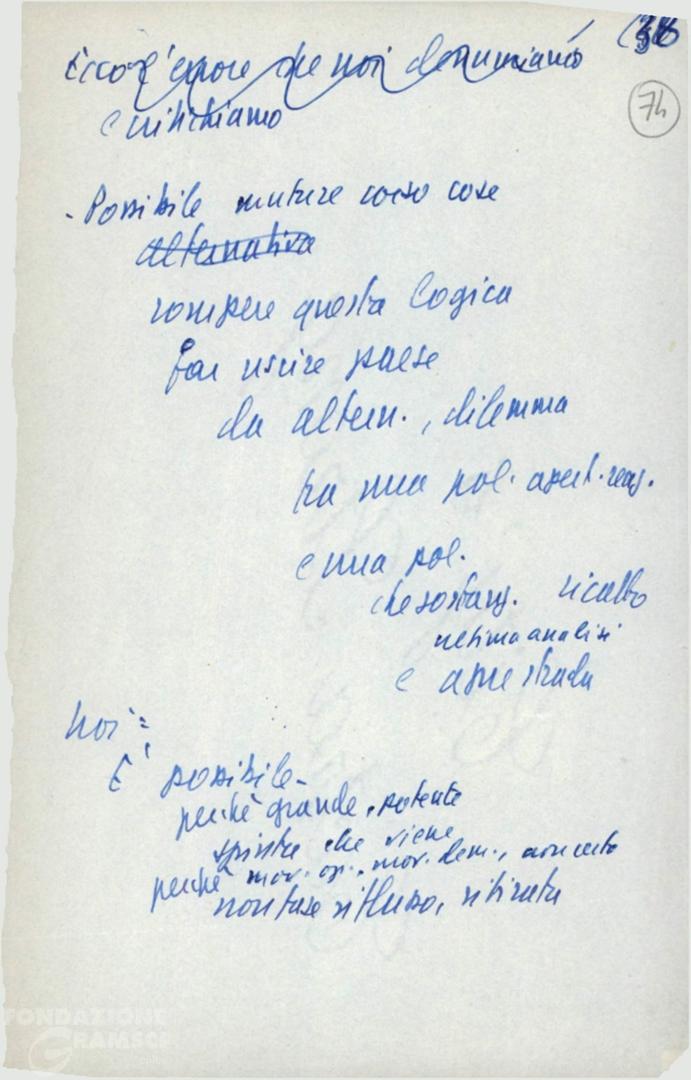 38
74
Ecco l'errore che noi denunciamo
e critichiamo
- Possibile mutare corso cose
alternativa
rompere questa logica
far uscire paese
da altern., dilemma
tra una pol. apert. reaz.
e una pol.
che sostanz. ricalca
ultima analisi
e apre strada
noi:
È possibile -
perché grande, potente
spinta che viene
perché mov. op., mov. dem., avanzata
non fase riflusso, ritirata
FONDAZIONE
GRAMSCI